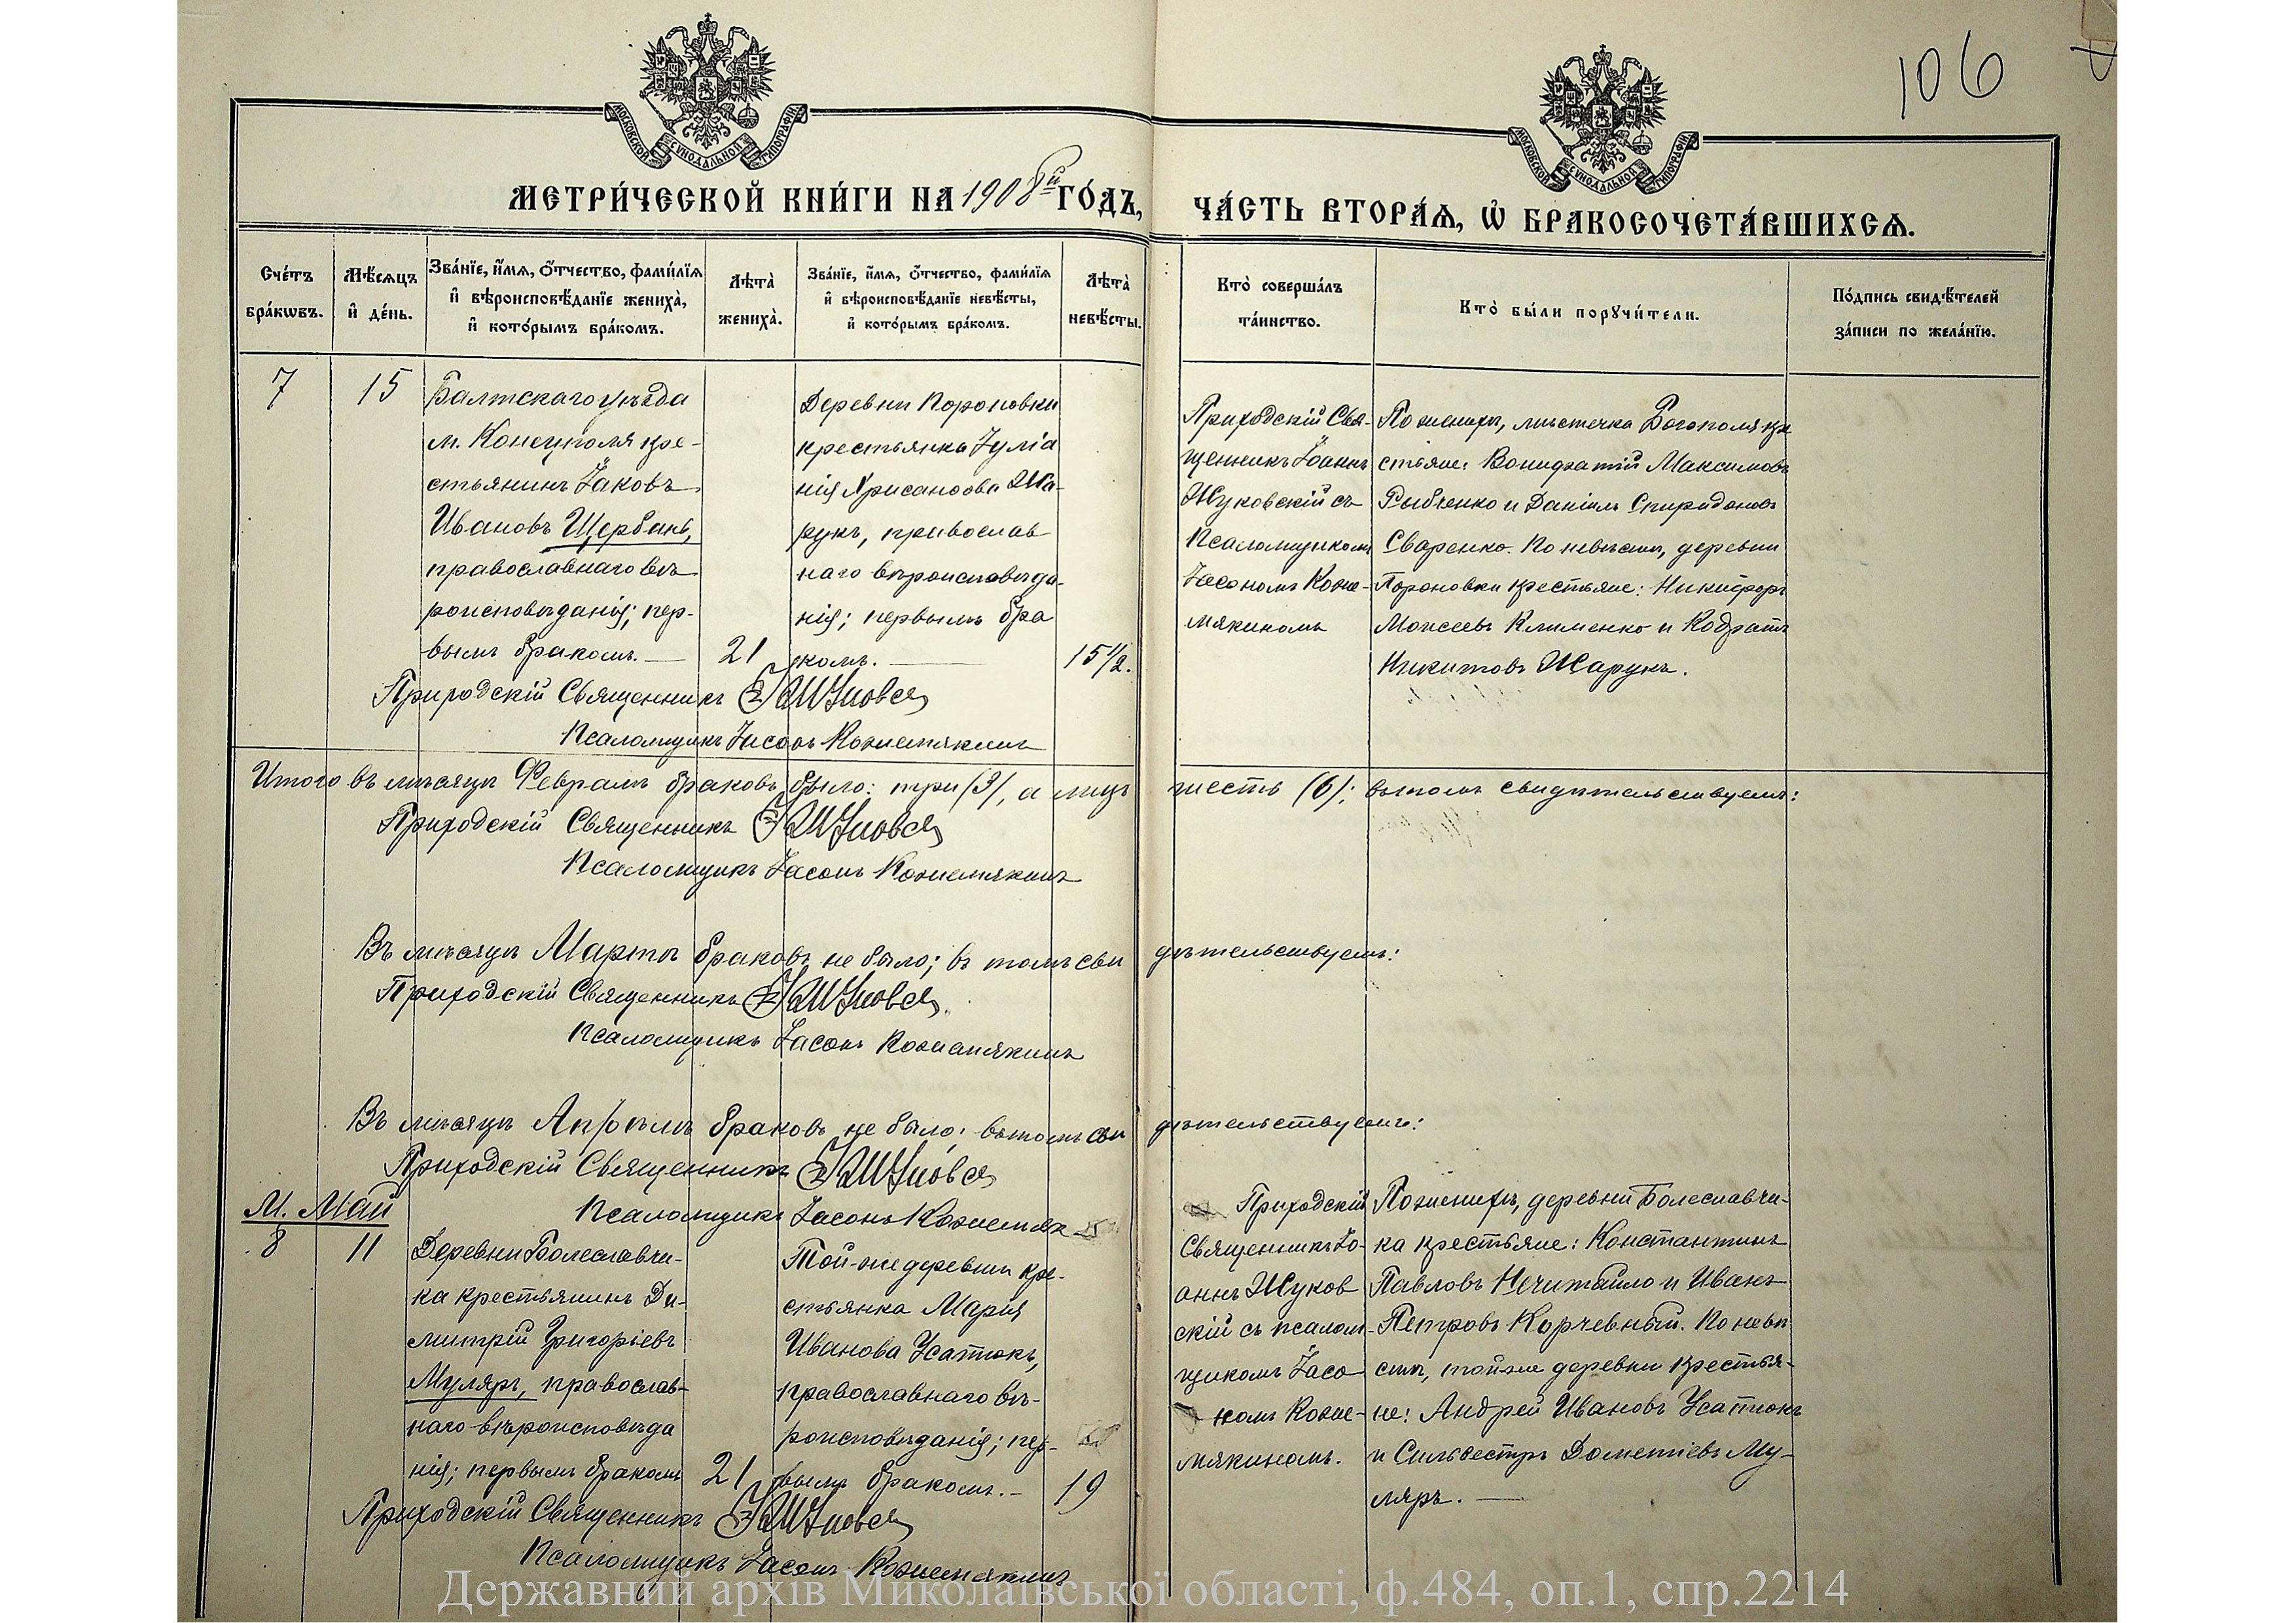 106
МОСКОВСКОЙ СУНОДАЛЬНОЙ ТИПОГРАФІИ
МОСКОВСКОЙ СУНОДАЛЬНОЙ ТИПОГРАФІИ
МЕТРИ́ЧЕСКОЙ КНИ́ГИ НА 1908й ГО́ДЪ, ЧА́СТЬ ВТОРА́Ѧ, Ѡ҆ БРАКОСОЧЕТА́ВШИХСѦ.
Сче́тъ бра́кѡвъ.
Мѣ́сѧцъ и҆ де́нь.
Зва́нїе, и҆́мѧ, ѻ҆́тчество, фами́лїѧ
и҆ вѣроисповѣ́данїе жениха̀,
и҆ кото́рымъ бра́комъ.
Лѣта̀ жениха̀.
Зва́нїе, и҆́мѧ, ѻ҆́тчество, фами́лїѧ
и҆ вѣроисповѣ́данїе невѣ́сты,
и҆ кото́рымъ бра́комъ.
Лѣта̀ невѣ́сты.
Кто̀ соверша́лъ
та́инство.
Кто̀ бы́ли порꙋчи́тели.
По́дпись свидѣ́телей
за́писи по жела́нїю.
7
15
Балтскаго уѣзда
м. Конецполя кре-
стьянинъ Іаковъ
Ивановъ Щербань,
православнаго вѣ-
роисповѣданія; пер-
вымъ бракомъ.
21
Деревни Пороновки
крестьянка Іуліа
нія Хрисанфова Жа-
рукъ, православ
наго вѣроисповѣда-
нія; первымъ бра
комъ.
15 1/2.
Приходскій Свя-
щенникъ Іоаннъ
Жуковскій съ
Псаломщикомъ
Іасономъ Коже-
мякиномъ
По женихѣ, мѣстечка Богополя кре
стьяне: Вонифатій Максимовъ
Рыбченко и Даніилъ Спиридоновъ
Сваренко. По невѣстѣ, деревни
Пороновки крестьяне: Никифоръ
Моисеевъ Клименко и Кодратъ
Никитовъ Жарукъ.
Приходскій Священникъ
Псаломщикъ Іасонъ Кожемякинъ
Итого въ мѣсяцѣ Февралѣ браковъ было: три (3), а лицъ шесть (6); въ томъ свидѣтельствуемъ:
Приходскій Священникъ
Псаломщикъ Іасонъ Кожемякинъ
Въ мѣсяцѣ Мартѣ браковъ не было; въ томъ сви дѣтельствуемъ:
Приходскій Священникъ
Псаломщикъ Іасонъ Кожемякинъ
Въ мѣсяцѣ Апрѣлѣ браковъ не было; въ томъ сви дѣтельствуемъ:
Приходскій Священникъ
Псаломщикъ Іасонъ Кожемяк
М. Май
8
11
Деревни Болеславчи-
ка крестьянинъ Ди-
митрій Григоріевъ
Муляръ, православ-
наго вѣроисповѣда
нія; первымъ бракомъ
21
Той-же деревни кре-
стьянка Марія
Иванова Усатюкъ,
православнаго вѣ-
роисповѣданія; пер-
вымъ бракомъ.
19
Приходскій
Священникъ Іо-
аннъ Жуков
скій съ псалом-
щикомъ Іасо
номъ Коже-
мякиномъ.
По женихѣ, деревни Болеславчи-
ка крестьяне: Константинъ
Павловъ Нечитайло и Иванъ
Петровъ Корчевный. По невѣ
стѣ, той-же деревни крестья-
не: Андрей Ивановъ Усатюкъ
и Сильвестръ Дометіевъ Му-
ляръ.
Приходскій Священникъ
Псаломщикъ Іасонъ Кожемякинъ
Державний архів Миколаївської області, ф.484, оп.1, спр.2214